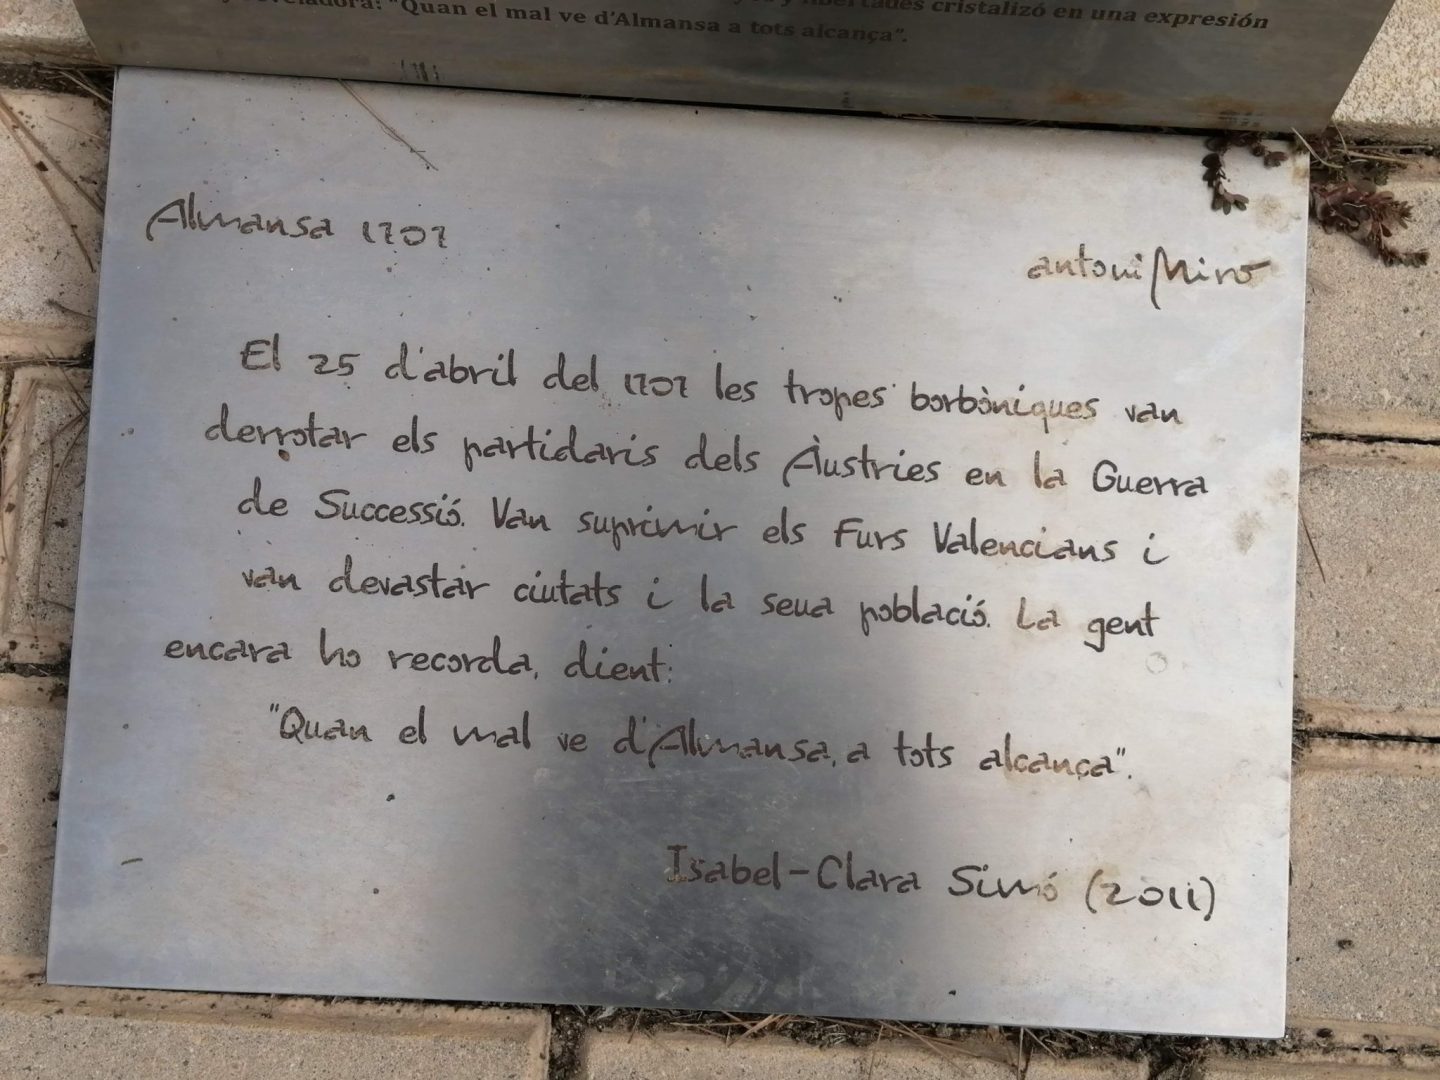 libertades cristalizó en una expresión
reveladora: "Quan el mal ve d'Almansa a tots alcança".
Almansa 1707
antoni Miró
El 25 d'abril del 1707 les tropes borbòniques van
derrotar els partidaris dels Àustries en la Guerra
de Successió. Van suprimir els Furs Valencians i
van devastar ciutats i la seua població. La gent
encara ho recorda, dient:
"Quan el mal ve d'Almansa, a tots alcança".
Isabel-Clara Simó (2011)